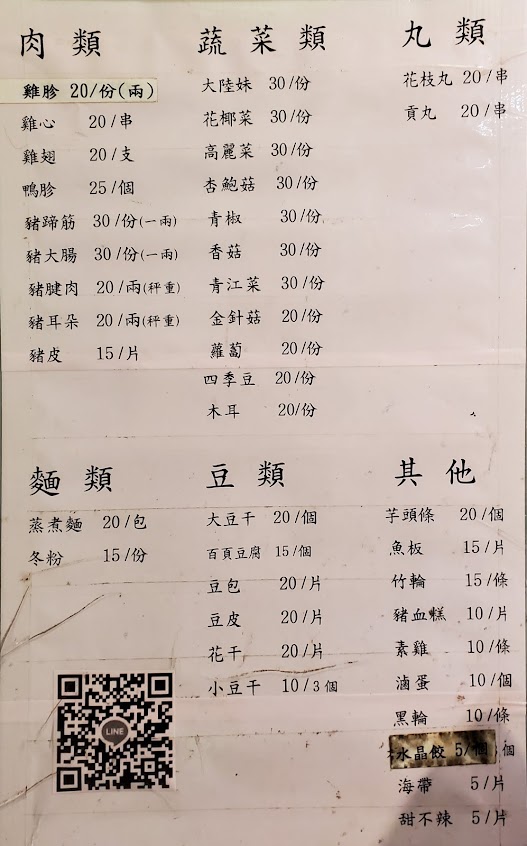 肉類
雞胗 20/份(兩)
雞心 20/串
雞翅 20/支
鴨胗 25/個
豬蹄筋 30/份(一兩)
豬大腸 30/份(一兩)
豬腱肉 20/兩(秤重)
豬耳朵 20/兩(秤重)
豬皮 15/片
蔬菜類
大陸妹 30/份
花椰菜 30/份
高麗菜 30/份
杏鮑菇 30/份
青椒 30/份
香菇 30/份
青江菜 30/份
金針菇 20/份
蘿蔔 20/份
四季豆 20/份
木耳 20/份
丸類
花枝丸 20/串
貢丸 20/串
麵類
蒸煮麵 20/包
冬粉 15/份
豆類
大豆干 20/個
百頁豆腐 15/個
豆包 20/片
豆皮 20/片
花干 20/片
小豆干 10/3個
其他
芋頭條 20/個
魚板 15/片
竹輪 15/條
豬血糕 10/片
素雞 10/條
滷蛋 10/個
黑輪 10/條
水晶餃 5/個
海帶 5/片
甜不辣 5/片
LINE